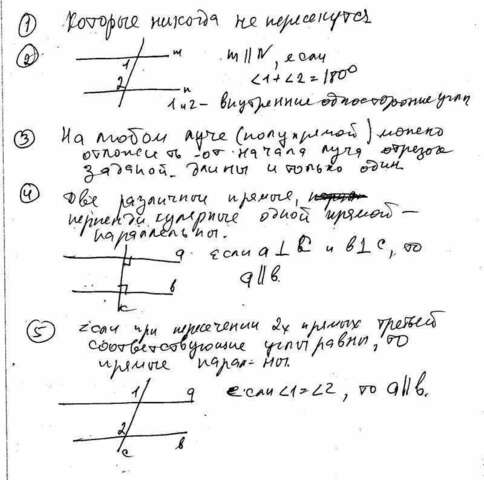 ① Которые никогда не пересекутся
② 1 m m || N, если
2 n ∠1+∠2=180°
1 и 2 – внутренние односторонние углы
③ На любом луче (полупрямой) можно
отложить от начала луча отрезок
заданой длины и только один.
④ Две различные прямые,
перпендикулярные одной прямой –
параллельны.
a если a ⊥ c и b ⊥ c, то
b a || b.
c
⑤ если при пересечении 2х прямых третьей
соответствующие углы равны, то
прямые парал-ны.
1 a если ∠1=∠2, то a || b.
2 b
c